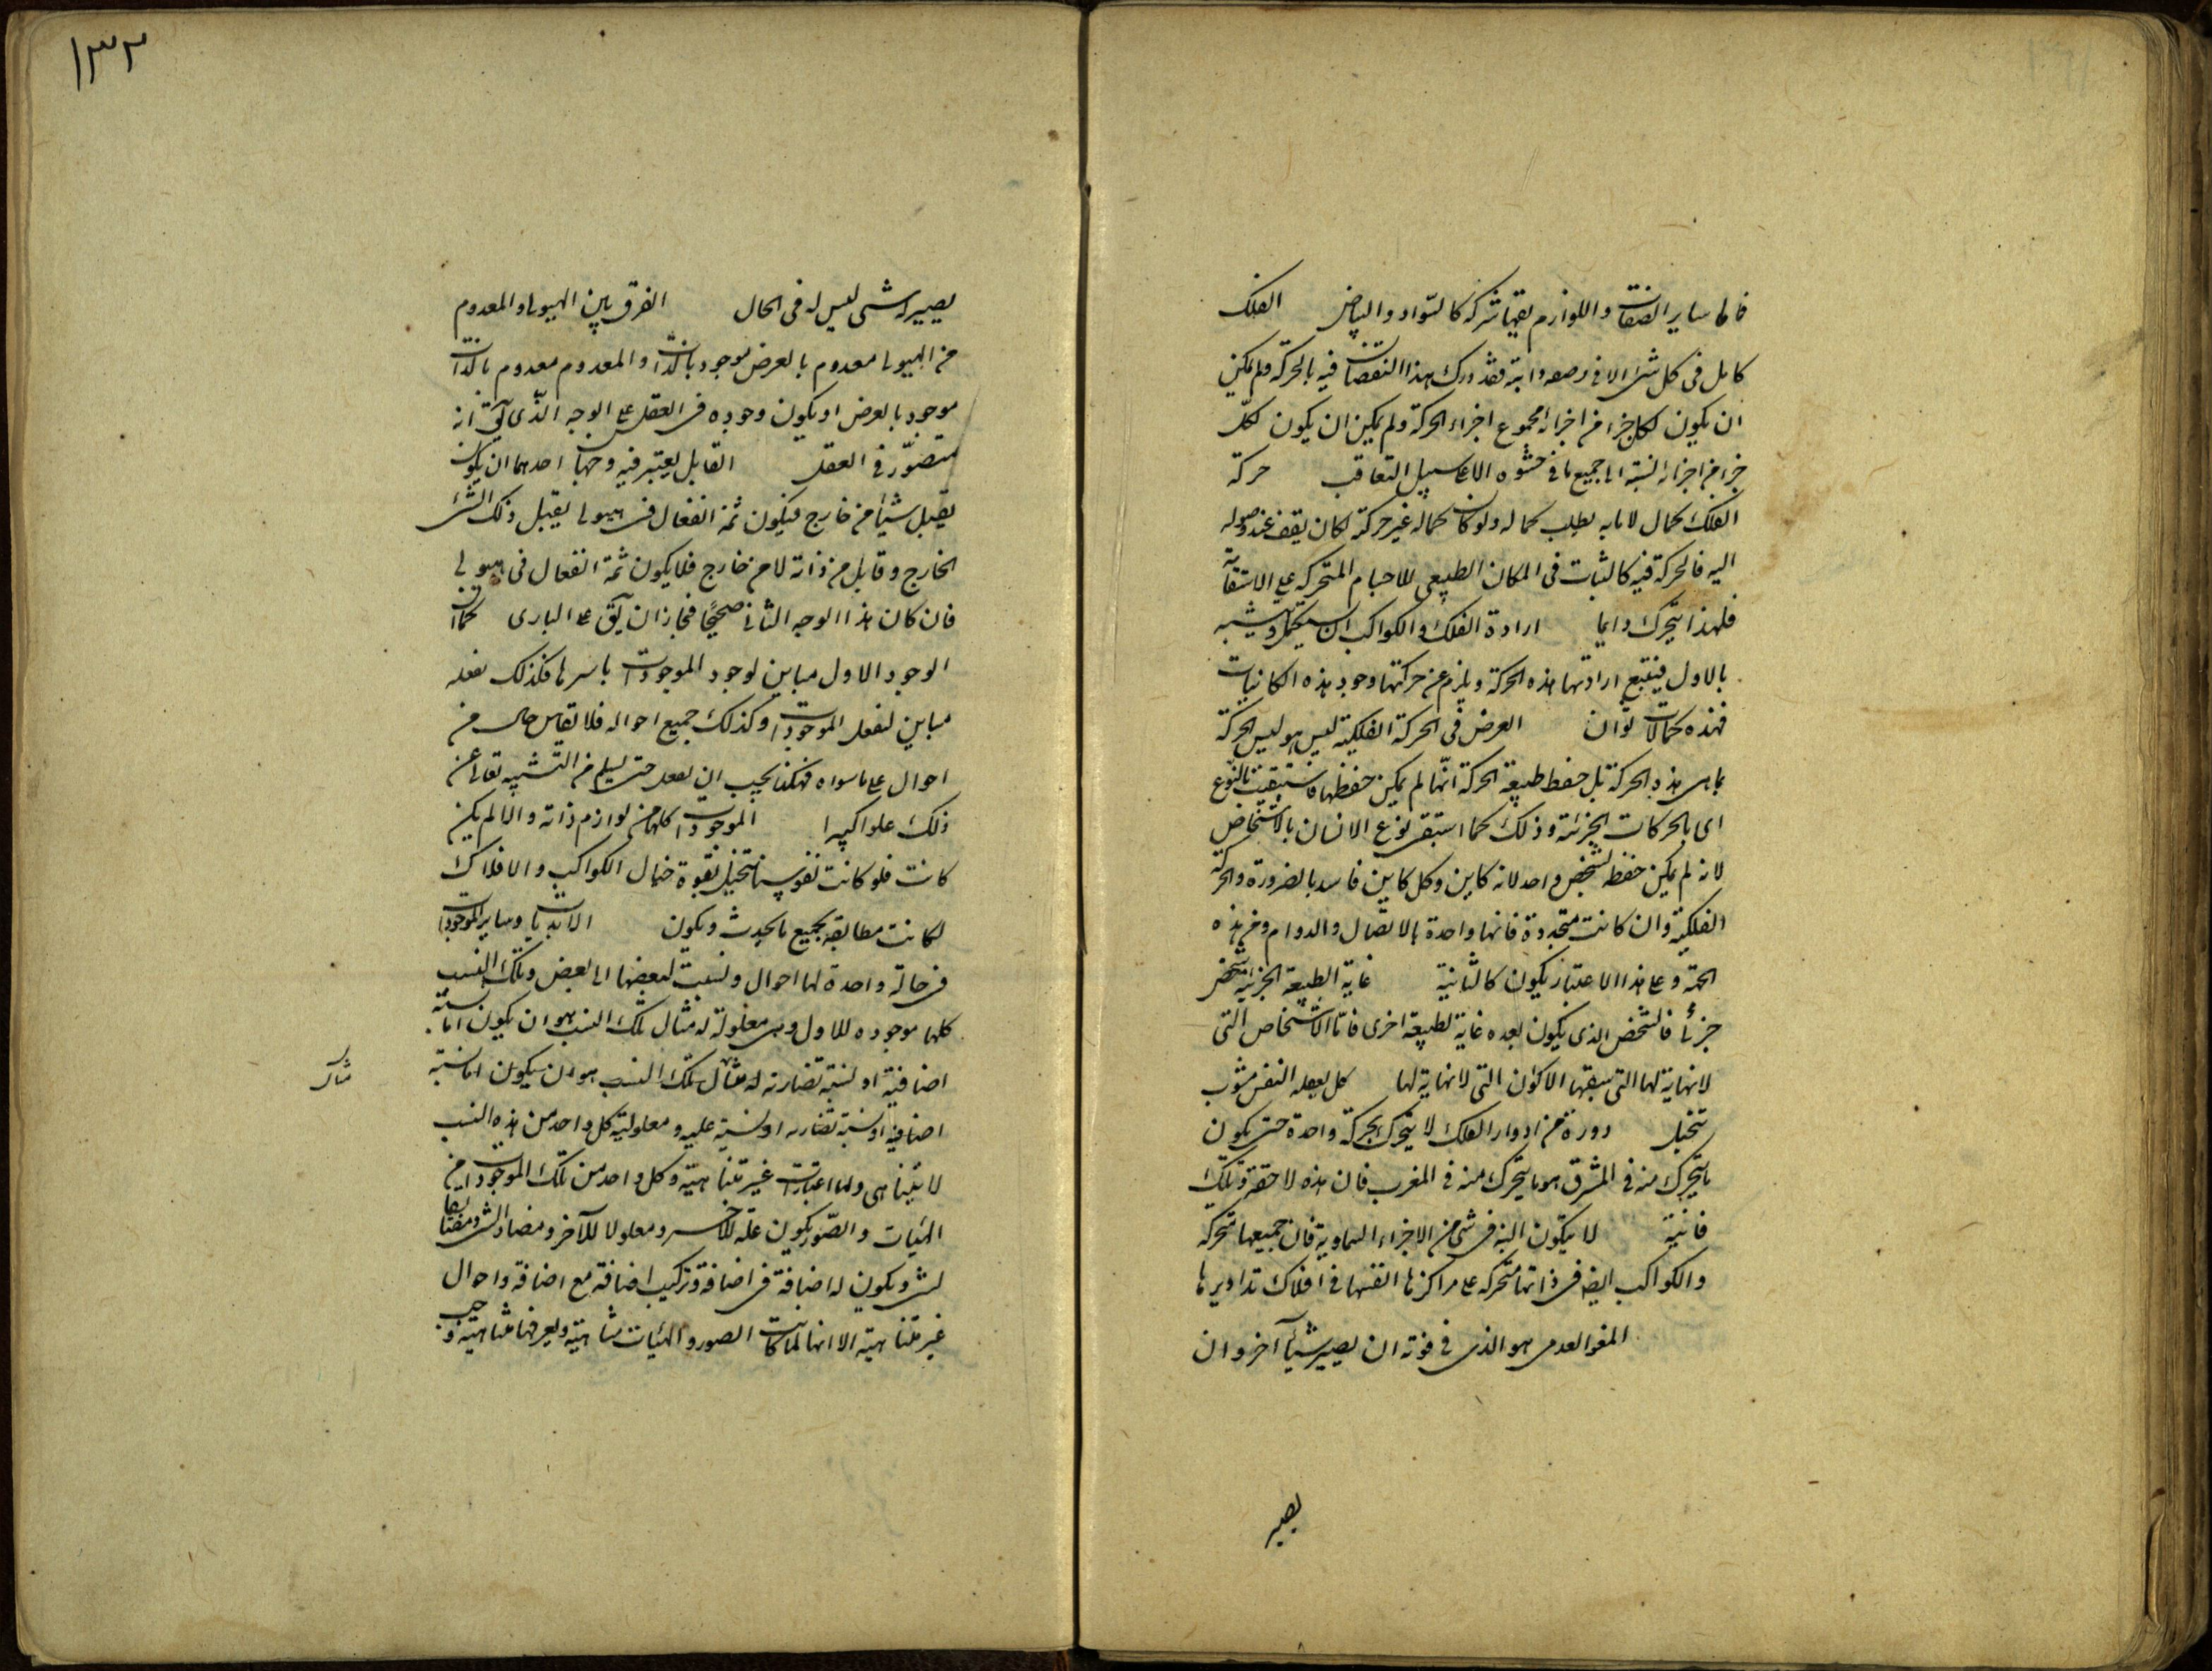 فاما ساير الصفات و اللوازم يقبها شركة كالسواد و البياض الفلك
كامل فى كل شئ الا فى وضعه و اينه فقدورك هذا النقصان فيه بالحركة و لم يكن
ان يكون لكل جزء من اجزائه مجموع اجزاء الحركة و لم يكن ان يكون لكل
جزء من اجزائه النسبة الى جميع ما فى حشوه الا على سبيل التعاقب حركة
الفلك كمال لا ما به يطلب كماله و لو كان كماله غير حركة لكان يقف عند وصوله
اليه فالحركة فيه كالثبات فى المكان الطبيعى للاجسام المتحركة على الاستقامة
فلهذا يتحرك دايما ارادة الفلك و الكواكب ان يستكمل و يتشبه
بالاول فيتبع ارادتها هذه الحركة و يلزم عن حركتها وجود هذه الكاينات
فهذه كمالات ثوان الغرض فى الحركة الفلكية ليس هو ليس الحركة
بما هى هذه الحركة بل حفظ طبيعة الحركة انها لم يمكن حفظها فاستبقيت بالنوع
اى بالحركات الجزئية و ذلك كما استبقى نوع الانسان بالاشخاص
لانه لم يمكن حفظ شخص واحد لانه كاين و كل كاين فاسد بالضرورة و الحركة
الفلكية و ان كانت متجددة فانها واحدة بالاتصال و الدوام و من هذه
الجهة و على هذا الاعتبار يكون كالثابتة غاية الطبيعة الجزئية شخص
جزئى فالشخص الذى يكون بعده غاية لطبيعة اخرى فاما الاشخاص التى
لا نهاية لها التى سبقها الاكوان التى لا نهاية لها كل بعقله النفس مشوب
بتخيل دورة من ادوار الفلك لا يتحرك بحركة واحدة حتى يكون
ما يتحرك منه فى المشرق هو ما يتحرك منه فى المغرب فان هذه لاحقة و تلك
فانية لا يتكون البتة فى شئ من الاجزاء السماوية فان جميعها متحركة
و الكواكب ايضا فى ذاتها متحركة على مراكزها انفسها فى افلاك تداويرها
المعنى العدمى هو الذى فى قوته ان يصير شيئا آخر و ان
يصير
١٣٢
يصير له شئ ليس له فى الحال الفرق بين الهيولى و المعدوم
من الهيولى معدوم بالعرض موجود بالذات و المعدوم معدوم بالذات
موجود بالعرض او يكون وجوده فى العقل على الوجه الذى يق انه
متصور فى العقل القابل يعتبر فيه وجهان احدهما ان يكون
يقبل شيئا من خارج فيكون ثمة انفعال فى هيولى يقبل ذلك الشئ
الخارج و قابل من ذاته لا من خارج فلا يكون ثمة انفعال فى هيولى
فان كان هذا الوجه الثانى صحيحا فجاز ان يق على البارى كما ان
الوجود الاول مباين لوجود الموجودات باسرها فكذلك تعقله
مباين لتعقل الموجودات و كذلك جميع احواله فلا تقاس حال من
احواله على ما سواه فهكذا يجب ان يعقل حتى يسلم من التشبيه تعالى عن
ذلك علوا كبيرا الموجودات كلها من لوازم ذاته و الا لم يكن
كانت فلو كانت نفوسنا تتخيل بقوة خيال الكواكب و الافلاك
لكانت مطابقة بجميع ما يحدث و يكون الابديات و ساير الموجودات
فى حالة واحدة لها احوال و نسبت لبعضها الى بعض و تلك النسب
كلها موجوده للاول و هى معلولة له مثال تلك النسب هو ان يكون اما نسبة
اضافية او نسبة تضاريه له مثال تلك النسب هو ان يكون اما نسبة
اضافية او نسبة تضاريه او نسبة عليه و معلولية كل واحد من هذه النسب
لا يتناهى و لها اعتبارات غير متناهية و كل واحد من تلك الموجودات من
الهيئات و الصور يكون علة للآخر و معلولا للآخر و مضاد الشئ و مضايفا
لشئ و يكون له اضافة فى اضافة و تركيب اضافة مع اضافة و احوال
غير متناهية الا انها لما كانت الصور و الهيئات متناهية و يعرفها متناهية وجب
مثال